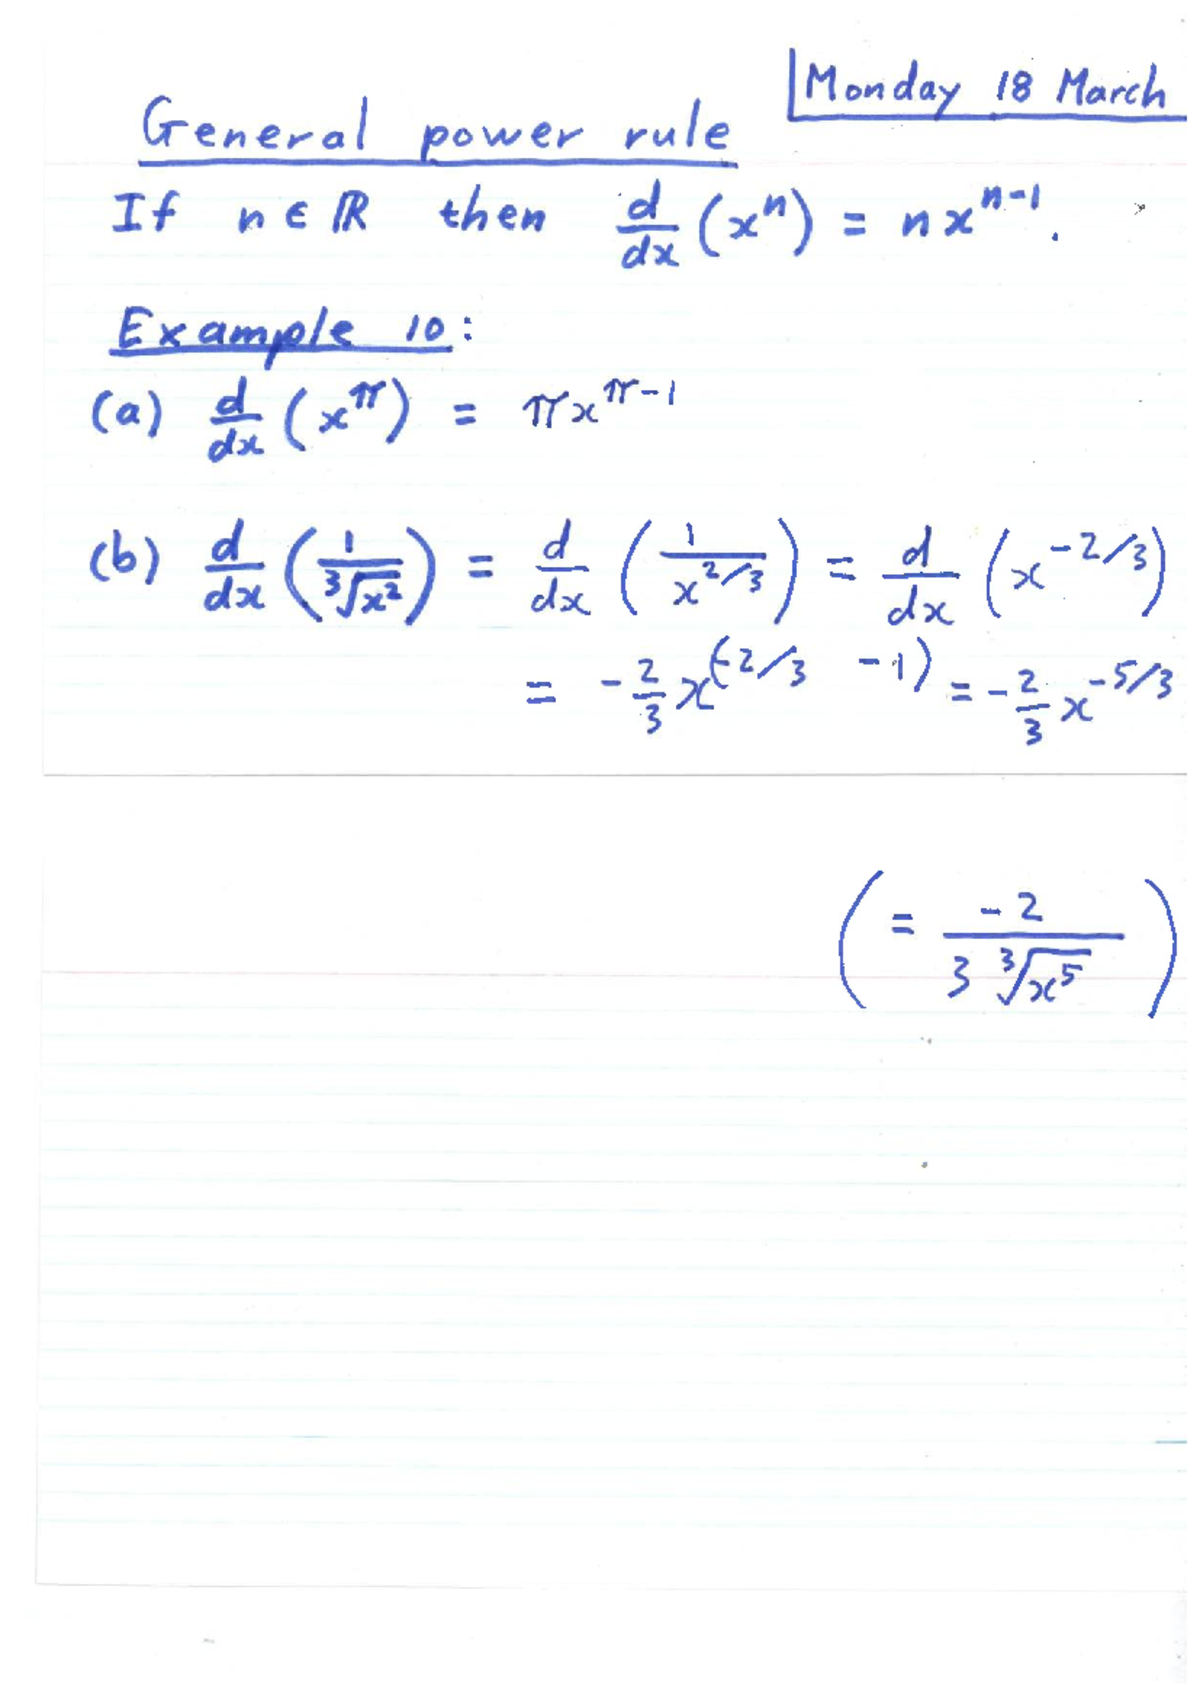 Monday 18 March
General power rule
If n ∈ ℝ then d/dx (xⁿ) = n xⁿ⁻¹.
Example 10:
(a) d/dx (x^π) = πx^(π-1)
(b) d/dx (1/∛(x²)) = d/dx (1/x^(2/3)) = d/dx (x^(-2/3))
= -2/3 x^(-2/3 -1) = -2/3 x^(-5/3)
(= -2/(3 ∛(x⁵)))